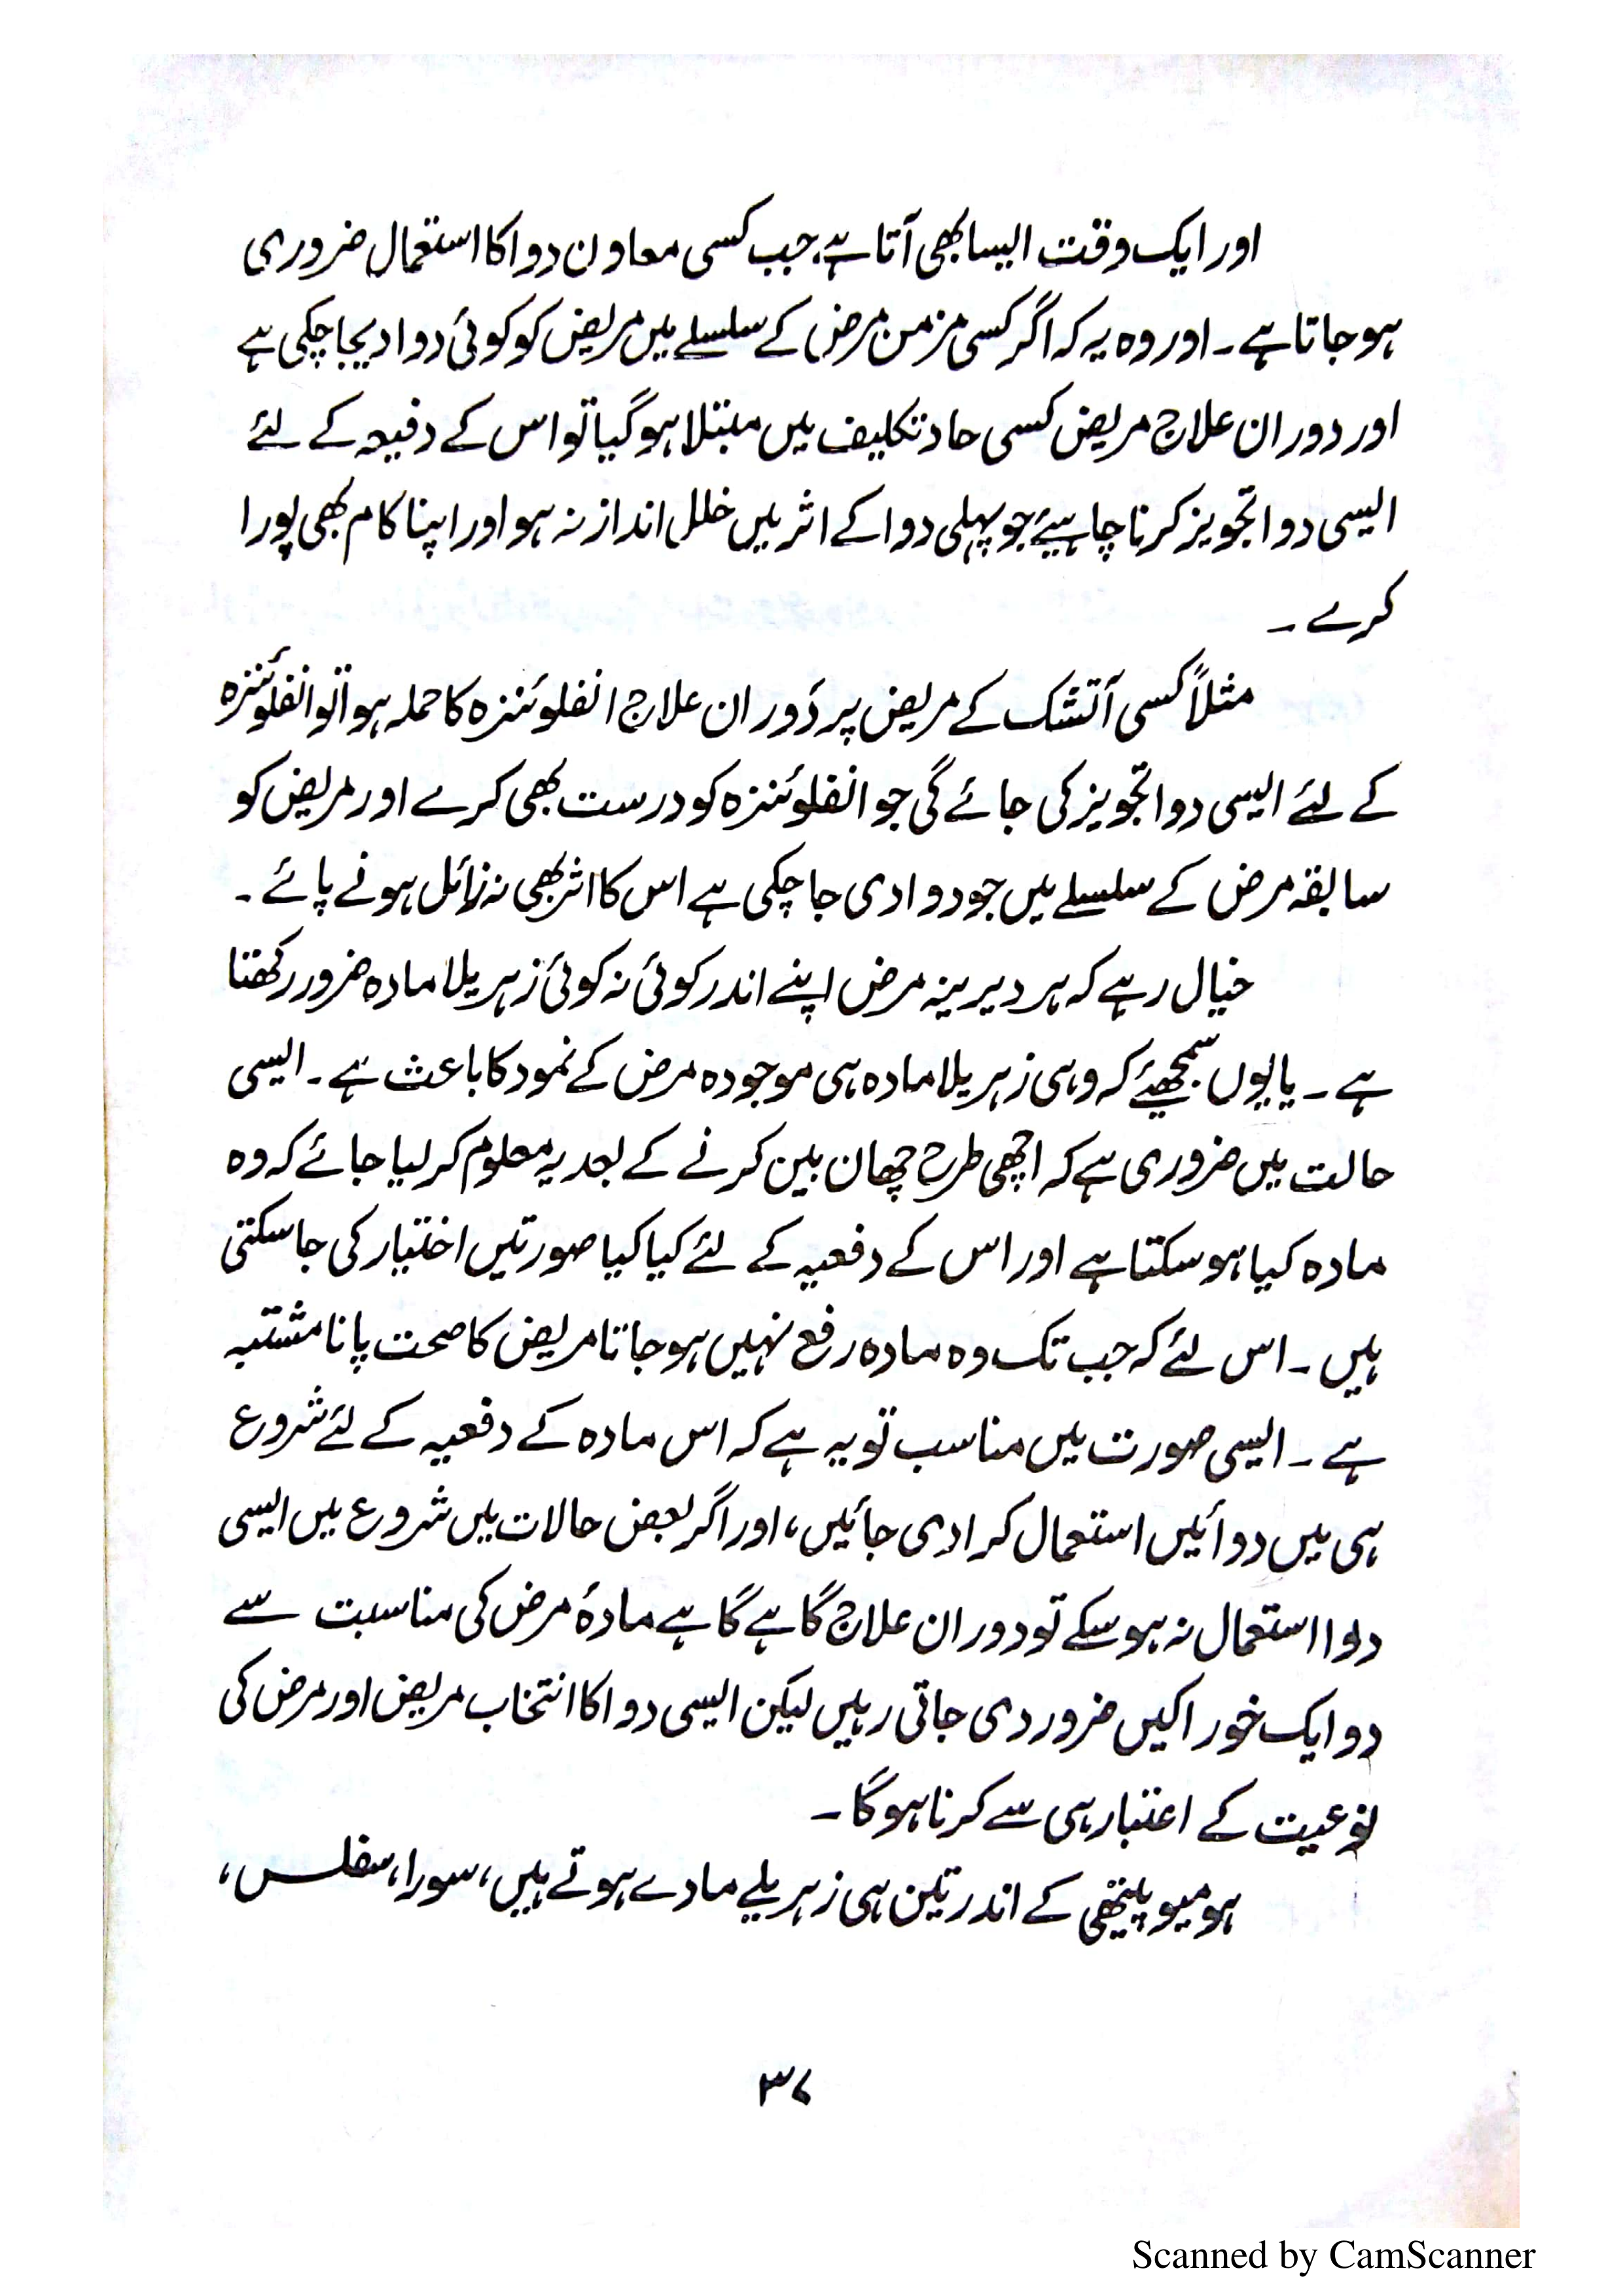 اور ایک وقت ایسا بھی آتا ہے، جب کسی معاون دوا کا استعمال ضروری
ہو جاتا ہے ۔ اور وہ یہ کہ اگر کسی مزمن مرض کے سلسلے میں مریض کو کوئی دوا دیجا چکی ہے
اور دوران علاج مریض کسی حاد تکلیف میں مبتلا ہو گیا تو اس کے دفیعہ کے لئے
ایسی دوا تجویز کرنا چاہیئے جو پہلی دوا کے اثر میں خلل انداز نہ ہو اور اپنا کام بھی پورا
کرے ۔
مثلاً کسی آتشک کے مریض پر دَوران علاج انفلوئنزہ کا حملہ ہوا تو انفلوئنزہ
کے لئے ایسی دوا تجویز کی جائے گی جو انفلوئنزہ کو درست بھی کرے اور مریض کو
سابقہ مرض کے سلسلے میں جو دوا دی جا چکی ہے اس کا اثر بھی نہ زائل ہونے پائے ۔
خیال رہے کہ ہر دیرینہ مرض اپنے اندر کوئی نہ کوئی زہریلا مادہ ضرور رکھتا
ہے ۔ یا یوں سمجھیئے کہ وہی زہریلا مادہ ہی موجودہ مرض کے نمود کا باعث ہے ۔ ایسی
حالت میں ضروری ہے کہ اچھی طرح چھان بین کرنے کے بعد یہ معلوم کر لیا جائے کہ وہ
مادہ کیا ہو سکتا ہے اور اس کے دفعیہ کے لئے کیا کیا صورتیں اختیار کی جا سکتی
ہیں ۔ اس لئے کہ جب تک وہ مادہ رفع نہیں ہو جاتا مریض کا صحت پانا مشتبہ
ہے ۔ ایسی صورت میں مناسب تو یہ ہے کہ اس مادہ کے دفعیہ کے لئے شروع
ہی میں دوائیں استعمال کرا دی جائیں، اور اگر بعض حالات میں شروع میں ایسی
دوا استعمال نہ ہو سکے تو دوران علاج گاہے گاہے مادۂ مرض کی مناسبت سے
دو ایک خوراکیں ضرور دی جاتی رہیں لیکن ایسی دوا کا انتخاب مریض اور مرض کی
نوعیت کے اعتبار ہی سے کرنا ہو گا ۔
ہومیوپیتھی کے اندر تین ہی زہریلے مادے ہوتے ہیں، سورا، سفلس،
۳۷
Scanned by CamScanner